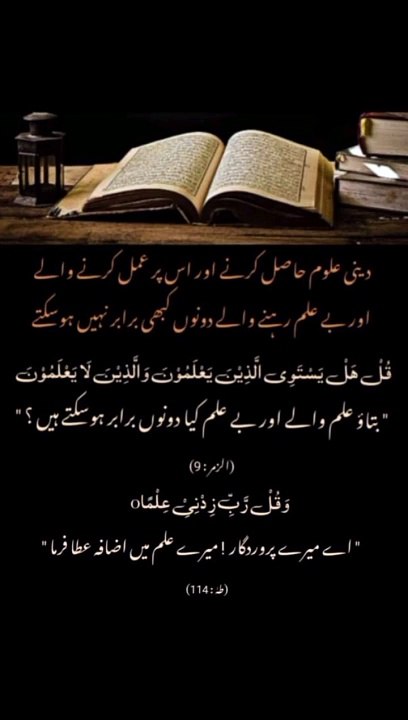 دینی علوم حاصل کرنے اور اس پر عمل کرنے والے
اور بے علم رہنے والے دونوں کبھی برابر نہیں ہو سکتے
قُلْ هَلْ يَسْتَوِى الَّذِيْنَ يَعْلَمُوْنَ وَالَّذِيْنَ لَا يَعْلَمُوْنَ
"بتاؤ علم والے اور بے علم کیا دونوں برابر ہو سکتے ہیں ؟"
(الزمر:9)
وَقُلْ رَّبِّ زِدْنِىْ عِلْمًا٥
"اے میرے پروردگار ! میرے علم میں اضافہ عطا فرما"
(طہٰ:114)